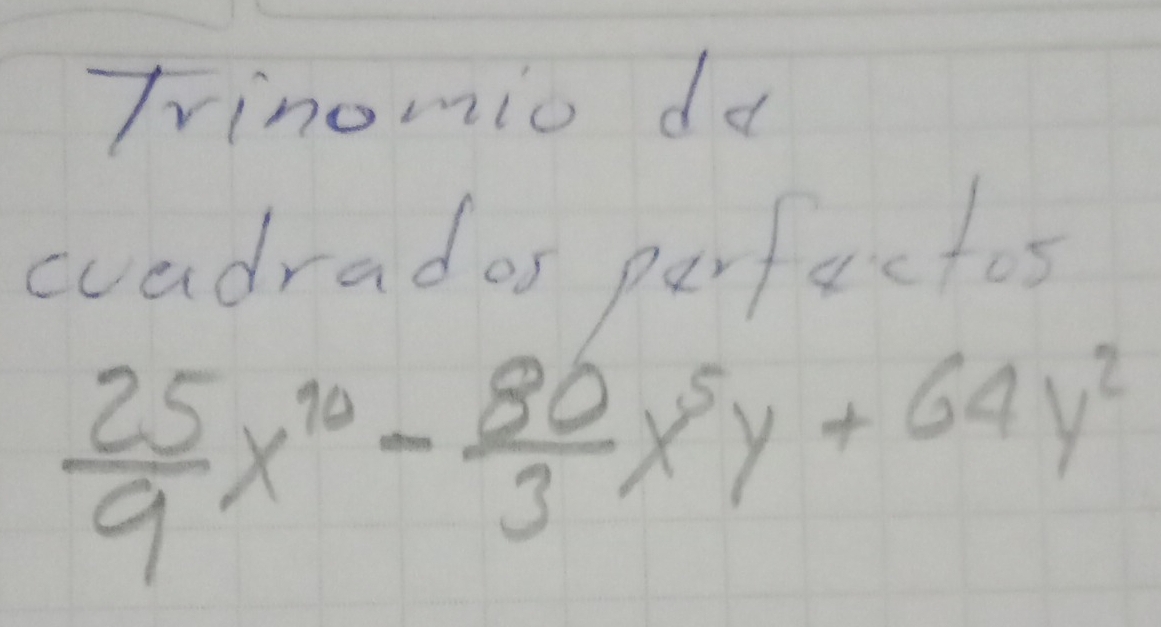 Trinomio de
cuadrados perfectos
25/9 x^10 - 80/3 x^5 y + 64 y^2